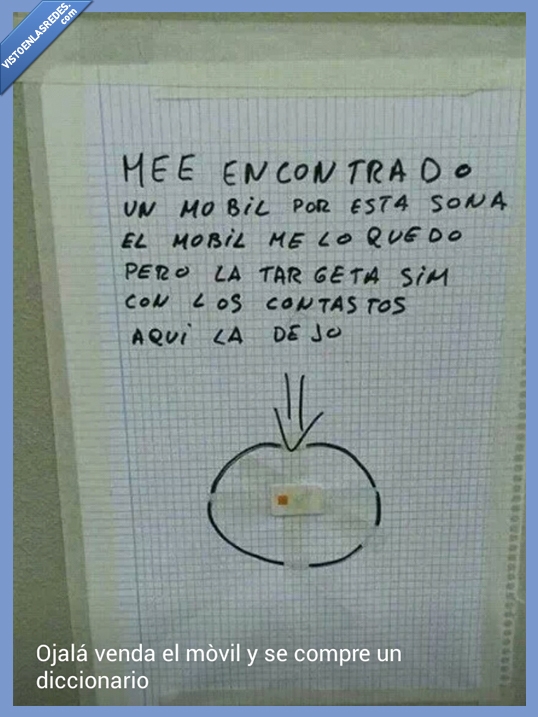 VISTOENLASREDES.
com
MEE ENCONTRADO
UN MOBIL POR ESTA SONA
EL MOBIL ME LO QUEDO
PERO LA TARGETA SIM
CON LOS CONTASTOS
AQUI LA DEJO
Ojalá venda el mòvil y se compre un
diccionario